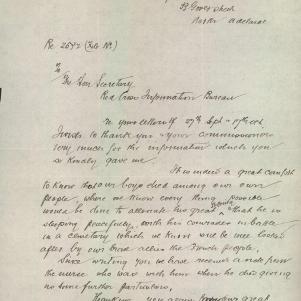 North Adelaide
Re 2642 (Feb 18)
The Hon. Secretary
Red Cross Information Bureau
In your letter of 27th Sept - 17th Oct
I wish to thank you & your commissioners
very much for the information which you
so kindly gave me.
It is indeed a great comfort
to know that our boys died among our own
people where we know every thing possible
would be done to alleviate his great & that he is
sleeping peacefully with his comrades in
in a cemetery which we know will be well looked
after by our brave allies the French people.
Since writing you we have received a note from
the nurse who was with him when he died giving
us some further particulars.
Thanking you again great